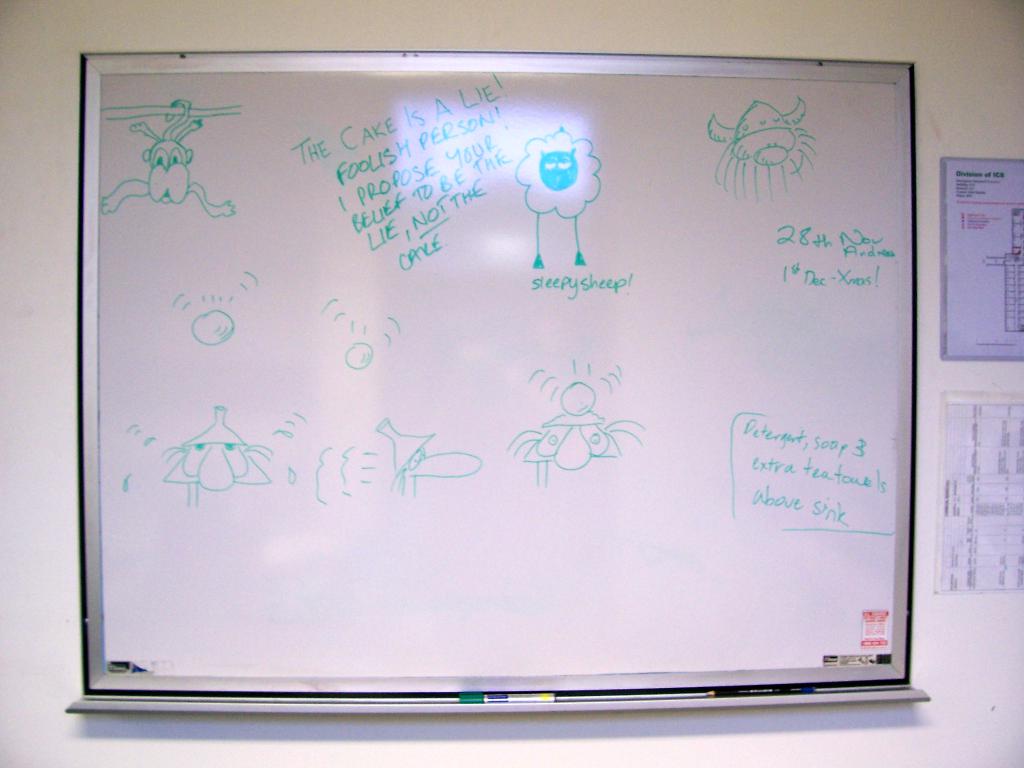 THE CAKE IS A LIE!
FOOLISH PERSON!
I PROPOSE YOUR
BELIEF TO BE THE
LIE, NOT THE
CAKE
sleepysheep!
28th Nov
Andrea
1st Dec - Xmas!
Detergent, soap &
extra tea towels
above sink
Division of ICS